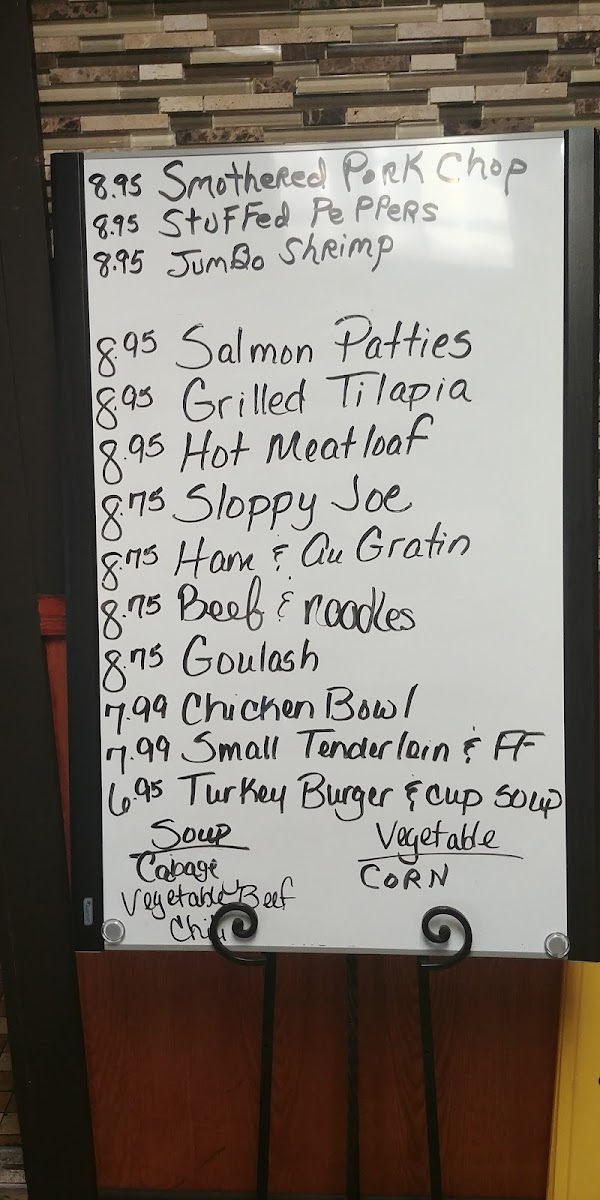 8.95 Smothered Pork Chop
8.95 Stuffed Peppers
8.95 Jumbo Shrimp
8.95 Salmon Patties
8.95 Grilled Tilapia
8.95 Hot Meatloaf
8.75 Sloppy Joe
8.75 Ham & Au Gratin
8.75 Beef & noodles
8.75 Goulash
7.99 Chicken Bowl
7.99 Small Tenderloin & FF
6.95 Turkey Burger & cup soup
Soup Vegetable
Cabage CORN
Vegetable Beef
Chili